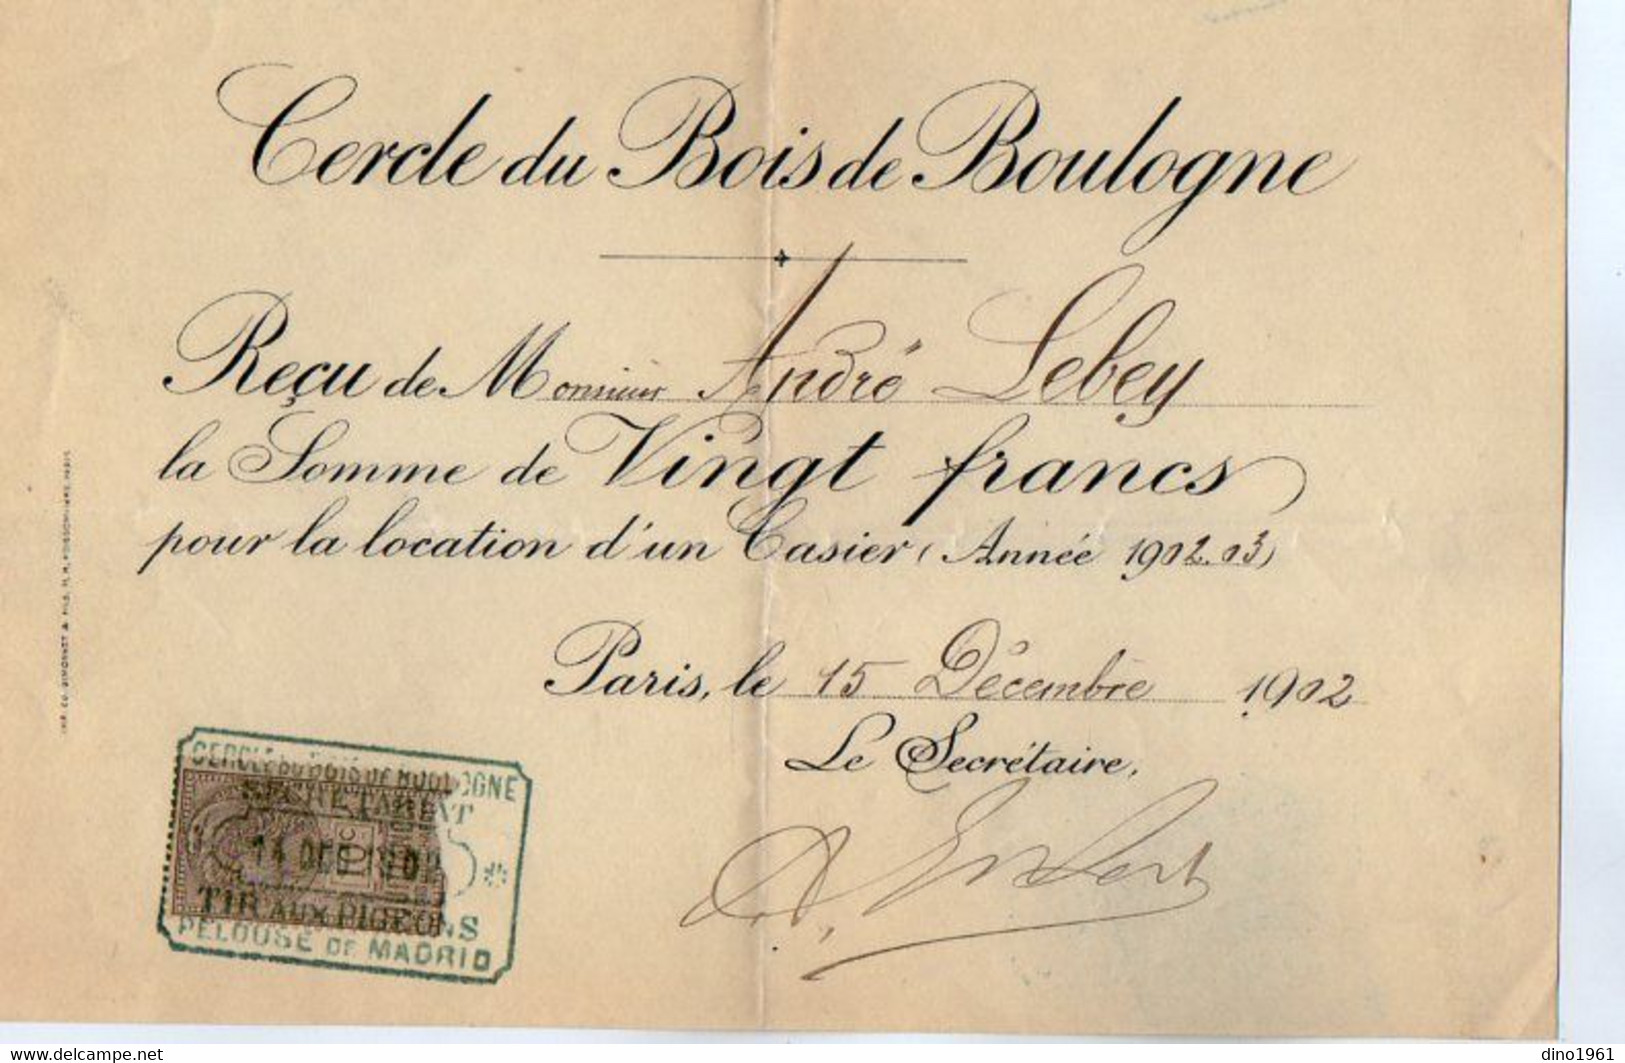 Cercle du Bois de Boulogne
Reçu de Monsieur André Lebey
la Somme de Vingt francs
pour la location d'un Casier (Année 1902.03)
Paris, le 15 Décembre 1902
Le Secrétaire,
CERCLE DU BOIS DE BOULOGNE
SECRETARIAT
14 DEC 1902
TIR AUX PIGEONS
PELOUSE DE MADRID
delcampe.net
dino1961